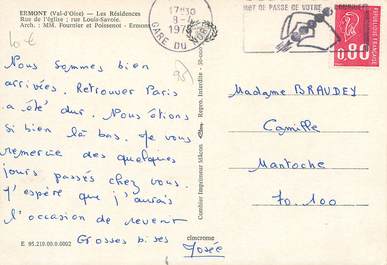 ERMONT (Val-d'Oise) — Les Résidences
Rue de l'église ; rue Louis-Savoie.
Arch. : MM. Fournier et Poissenot - Ermont
10 €
95)
Nous sommes bien
arrivées. Retrouver Paris
a été dur. Nous étions
si bien là bas. Je vous
remercie des quelques
jours passés chez vous.
J'espère que j'aurais
l'occasion de revenir
Grosses bises
Josée
E 95.219.00.0.0002
cimcrome
Combier Imprimeur Mâcon
Repro. Interdite
17H30
GARE DU NORD
MOT DE PASSE DE VOTRE
0,80
Madame BRAUDEY
Camille
Mantoche
70.100